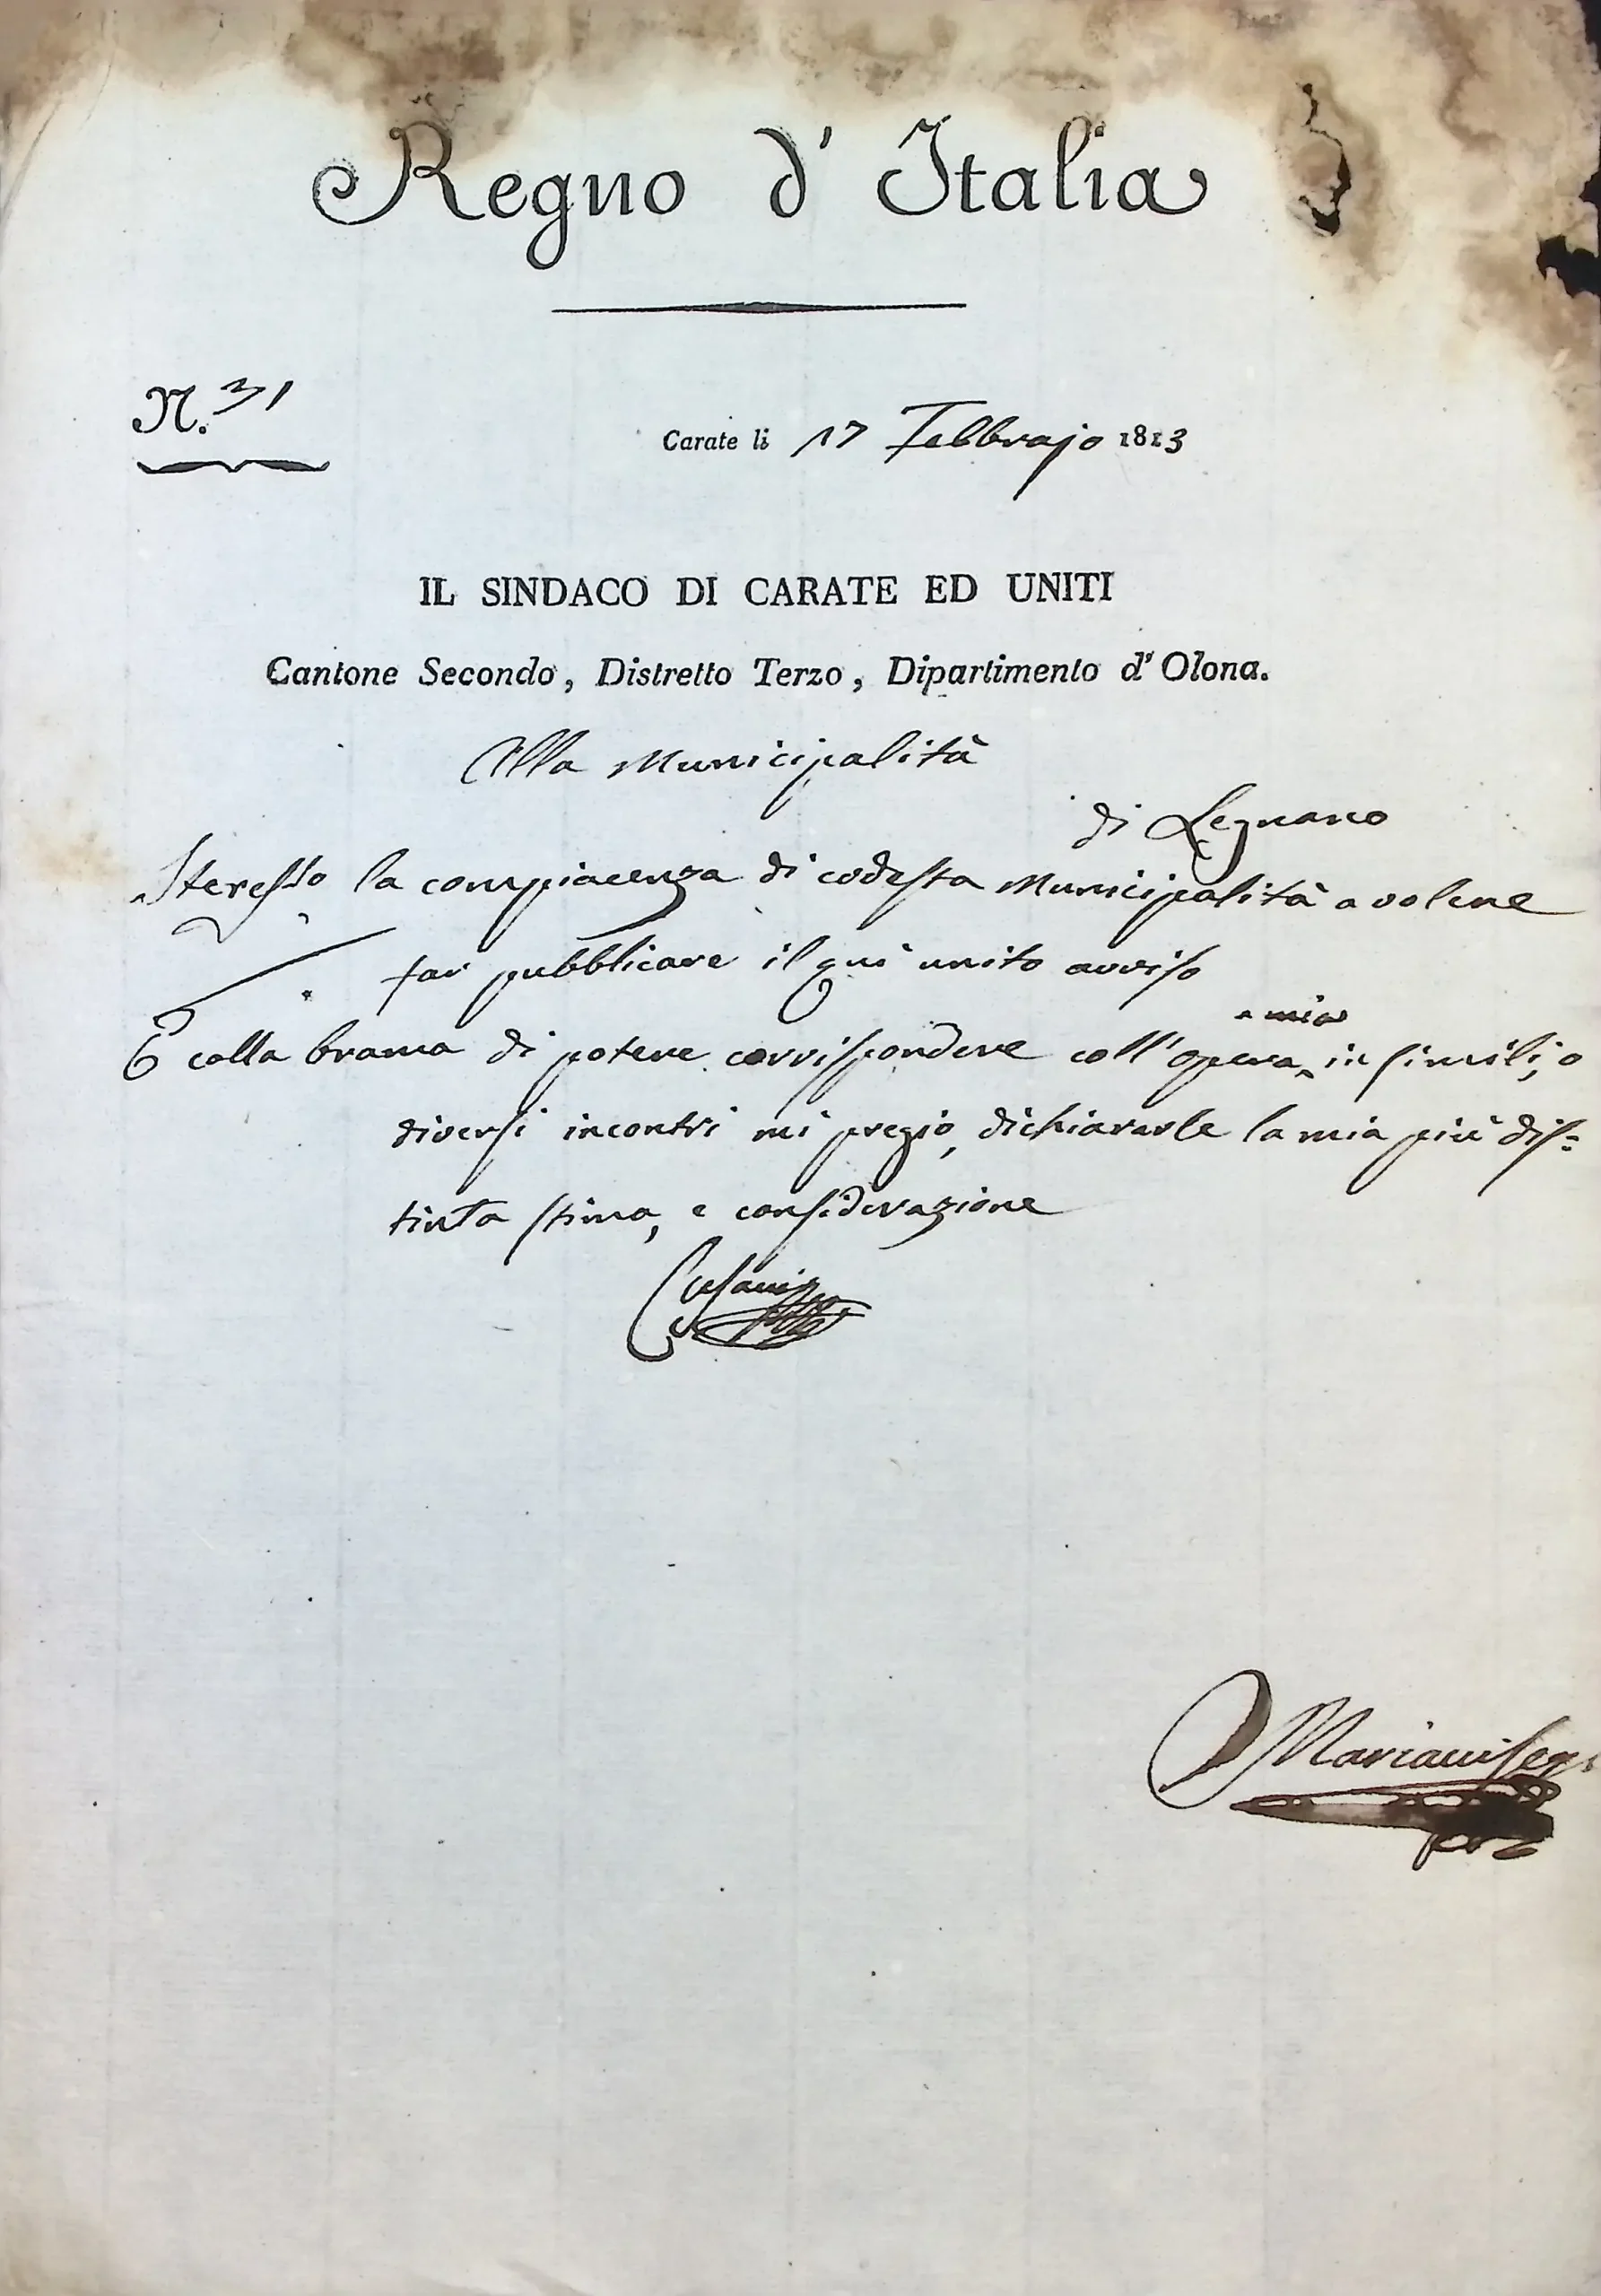 Regno d' Italia
N. 31
Carate li 17 Febbrajo 1813
IL SINDACO DI CARATE ED UNITI
Cantone Secondo, Distretto Terzo, Dipartimento d' Olona.
Alla Municipalità
di Legnano
la compiacenza di codesta Municipalità a volere
far pubblicare il quì unito avviso
mia
E colla brama di potere corrispondere coll' opera in simili, o
diversi incontri mi pregio, dichiararle la mia più dis=
tinta stima, e considerazione
Mariani